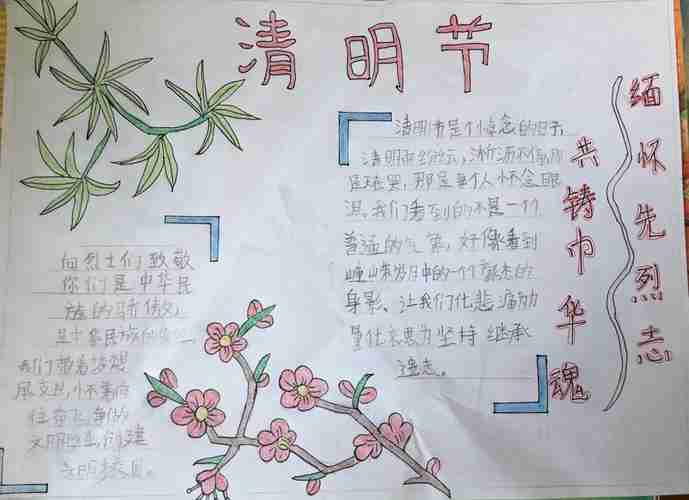 清明节
缅怀先烈志
共铸巾华魂
清明节是个悼念的日子
清明雨纷纭,淅沥不停,那
是,那是每个人怀念眼
泪,我们看到的不是一个
普通的气氛,好像看到
岁月中的一个的
身影、让我们化悲痛为
量化哀思为坚持继承
遗志。
向烈士们致敬
你们是中华民
族的骄傲,
是中华民族的
我们带着梦想
怀着向
往奋飞,争做
文明学生,创建
文明校园。